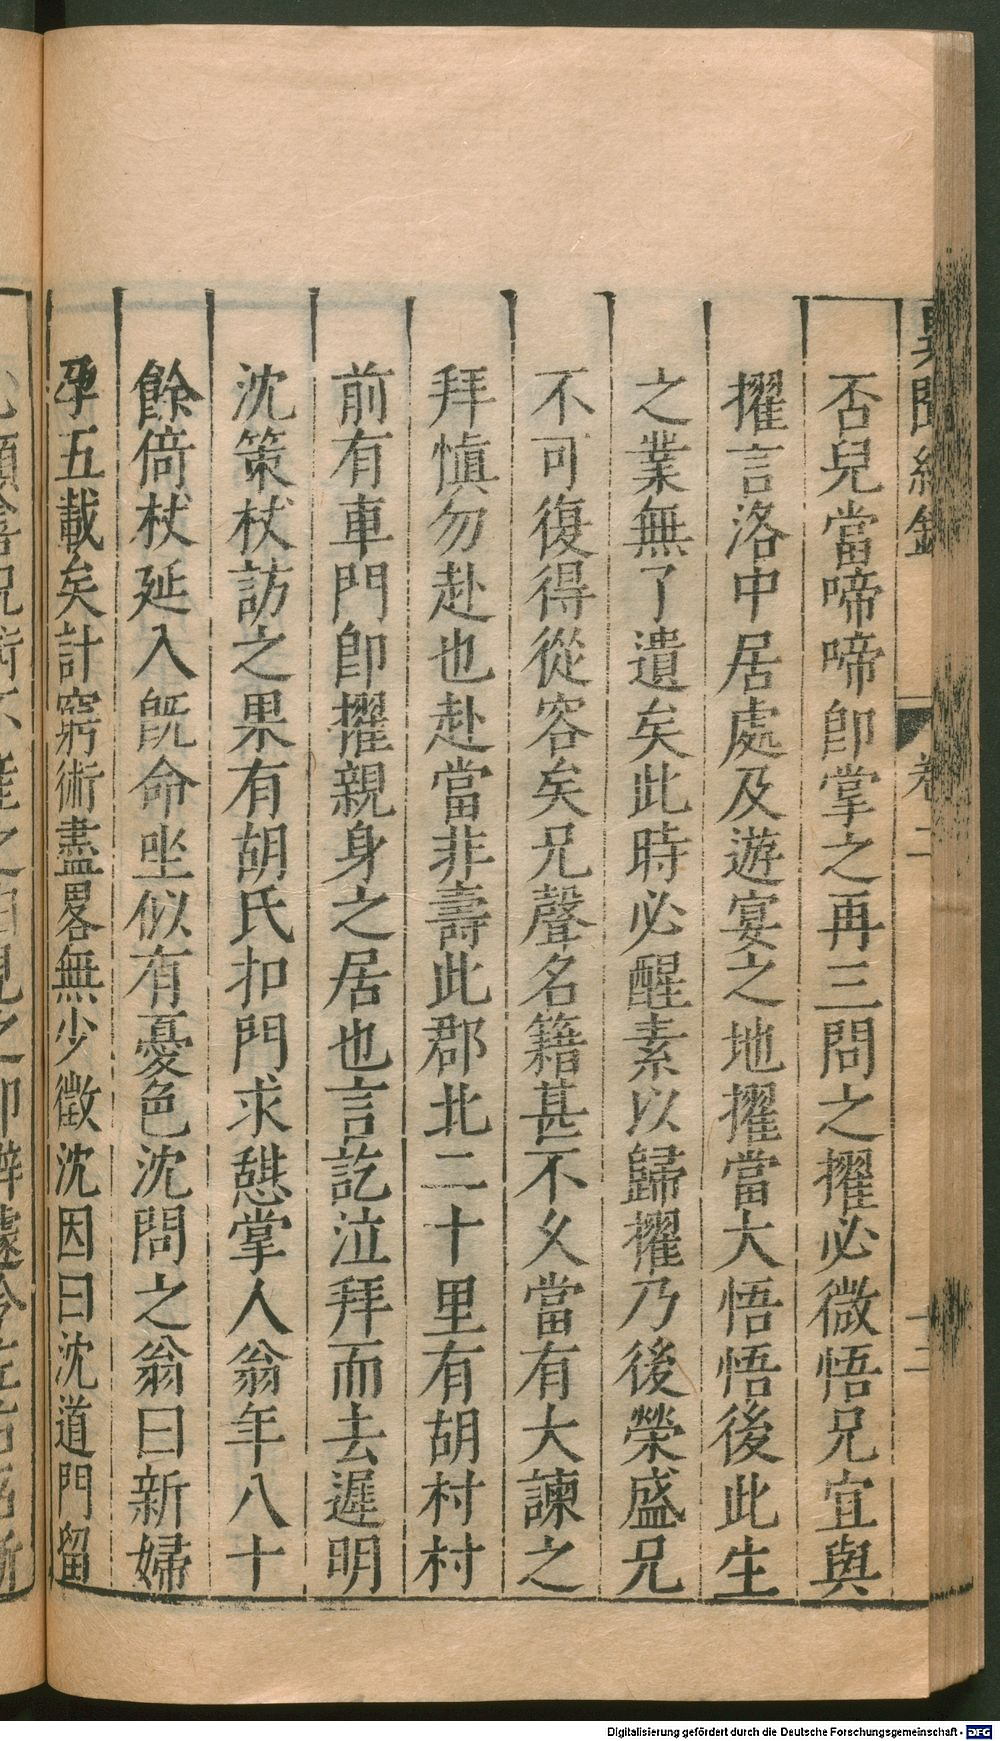 異聞總錄 卷二 十二
否兒當啼啼卽掌之再三問之擢必微悟兄宜與
擢言洛中居處及遊宴之地擢當大悟悟後此生
之業無了遺矣此時必醒素以歸擢乃後榮盛兄
不可復得從容矣兄聲名籍甚不乆當有大諫之
拜愼勿赴也赴當非壽此郡北二十里有胡村村
前有車門卽擢親身之居也言訖泣拜而去遲明
沈策杖訪之果有胡氏扣門求憇掌人翁年八十
餘倚杖延入旣命坐似有憂色沈問之翁曰新婦
孕五載矣計窮術盡畧無少徵沈因曰沈道門留
Digitalisierung gefördert durch die Deutsche Forschungsgemeinschaft - DFG